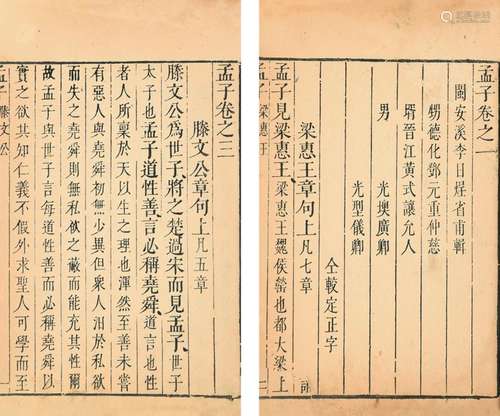 孟子卷之一
閩安溪李日煜省甫輯
甥德化鄧元重仲慈
壻晉江黃式讓允人
男 光墺廣卿
光型儀卿
仝較定正字
梁惠王章句上凡七章
孟子見梁惠王、梁惠王魏侯罃也都大梁上
孟子 梁惠王
孟子卷之三
滕文公章句上凡五章
滕文公爲世子、將之楚過宋而見孟子、世子
太子也孟子道性善、言必稱堯舜、道言也性
者人所稟於天以生之理也渾然至善未嘗
有惡人與堯舜初無少異但衆人汨於私欲
而失之堯舜則無私欲之蔽而能充其性爾
故孟子與世子言每道性善而必稱堯舜以
實之欲其知仁義不假外求聖人可學而至
孟子 滕文公